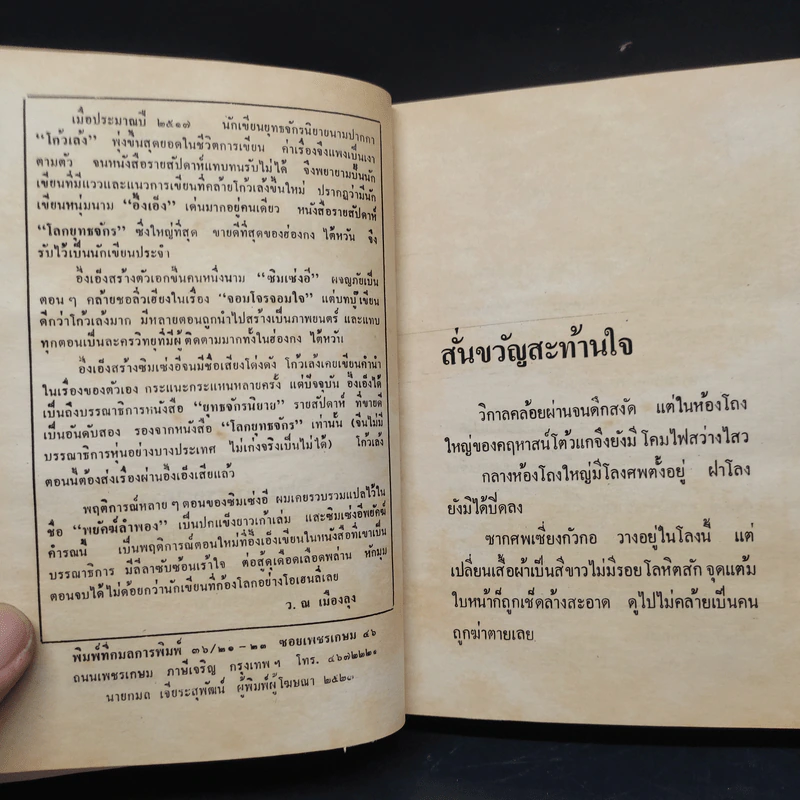 เมื่อประมาณปี ๒๕๑๗ นักเขียนยุทธจักรนิยายนามปากกา
“โก้วเล้ง” พุ่งขึ้นสุดยอดในชีวิตการเขียน ค่าเรื่องจึงแพงเป็นเงา
ตามตัว จนหนังสือรายสัปดาห์แทบทนรับไม่ได้ จึงพยายามปั้นนัก
เขียนที่มีแววและแนวการเขียนที่คล้ายโก้วเล้งขึ้นใหม่ ปรากฏว่ามีนัก
เขียนหนุ่มนาม “อึ้งเอ็ง” เด่นมากอยู่คนเดียว หนังสือรายสัปดาห์
“โลกยุทธจักร” ซึ่งใหญ่ที่สุด ขายดีที่สุดของฮ่องกง ไต้หวัน จึง
รับไว้เป็นนักเขียนประจำ
อึ้งเอ็งสร้างตัวเอกขึ้นคนหนึ่งนาม “ซิมเซ่งอี” ผจญภัยเป็น
ตอน ๆ คล้ายชอลิ่วเฮียงในเรื่อง “จอมโจรจอมใจ” แต่บทบู๊เขียน
ดีกว่าโก้วเล้งมาก มีหลายตอนถูกนำไปสร้างเป็นภาพยนตร์ และแทบ
ทุกตอนเป็นละครวิทยุที่มีผู้ติดตามมากทั้งในฮ่องกง ไต้หวัน
อึ้งเอ็งสร้างซิมเซ่งอีจนมีชื่อเสียงโด่งดัง โก้วเล้งเคยเขียนคำนำ
ในเรื่องของตัวเอง กระแนะกระแหนหลายครั้ง แต่ปัจจุบัน อึ้งเอ็งได้
เป็นถึงบรรณาธิการหนังสือ “ยุทธจักรนิยาย” รายสัปดาห์ ที่ขายดี
เป็นอันดับสอง รองจากหนังสือ “โลกยุทธจักร” เท่านั้น (จีนไม่มี
บรรณาธิการหุ่นอย่างบางประเทศ ไม่เก่งจริงเป็นไม่ได้) โก้วเล้ง
ตอนนี้ต้องส่งเรื่องผ่านอึ้งเอ็งเสียแล้ว
พฤติการณ์หลาย ๆ ตอนของซิมเซ่งอี ผมเคยรวบรวมแปลไว้ใน
ชื่อ “พยัคฆ์ลำพอง” เป็นปกแข็งยาวเก้าเล่ม และซิมเซ่งอีพยัคฆ์
คำรณนี้ เป็นพฤติการณ์ตอนใหม่ที่อึ้งเอ็งเขียนในหนังสือที่เขาเป็น
บรรณาธิการ มีลีลาซับซ้อนเร้าใจ ต่อสู้ดุเดือดเลือดพล่าน หักมุม
ตอนจบได้ไม่ด้อยกว่านักเขียนที่ก้องโลกอย่างโอเฮนลี่เลย
ว. ณ เมืองลุง
พิมพ์ที่กมลการพิมพ์ ๓๖/๒๑ – ๒๓ ซอยเพชรเกษม ๔๖
ถนนเพชรเกษม ภาษีเจริญ กรุงเทพฯ โทร. ๔๖๗๒๒๒๑
นายกมล เจียระสุพัฒน์ ผู้พิมพ์ผู้โฆษณา
สั่นขวัญสะท้านใจ
วิกาลคล้อยผ่านจนดึกสงัด แต่ในห้องโถง
ใหญ่ของคฤหาสน์โต้วแกจึงยังมีโคมไฟสว่างไสว
กลางห้องโถงใหญ่มีโลงศพตั้งอยู่ ฝาโลง
ยังมิได้ปิดลง
ซากศพเซี่ยงกัวกอ วางอยู่ในโลงนี้ แต่
เปลี่ยนเสื้อผ้าเป็นสีขาวไม่มีรอยโลหิตสักจุดแต้ม
ใบหน้าก็ถูกเช็ดล้างสะอาด ดูไปไม่คล้ายเป็นคน
ถูกฆ่าตายเลย